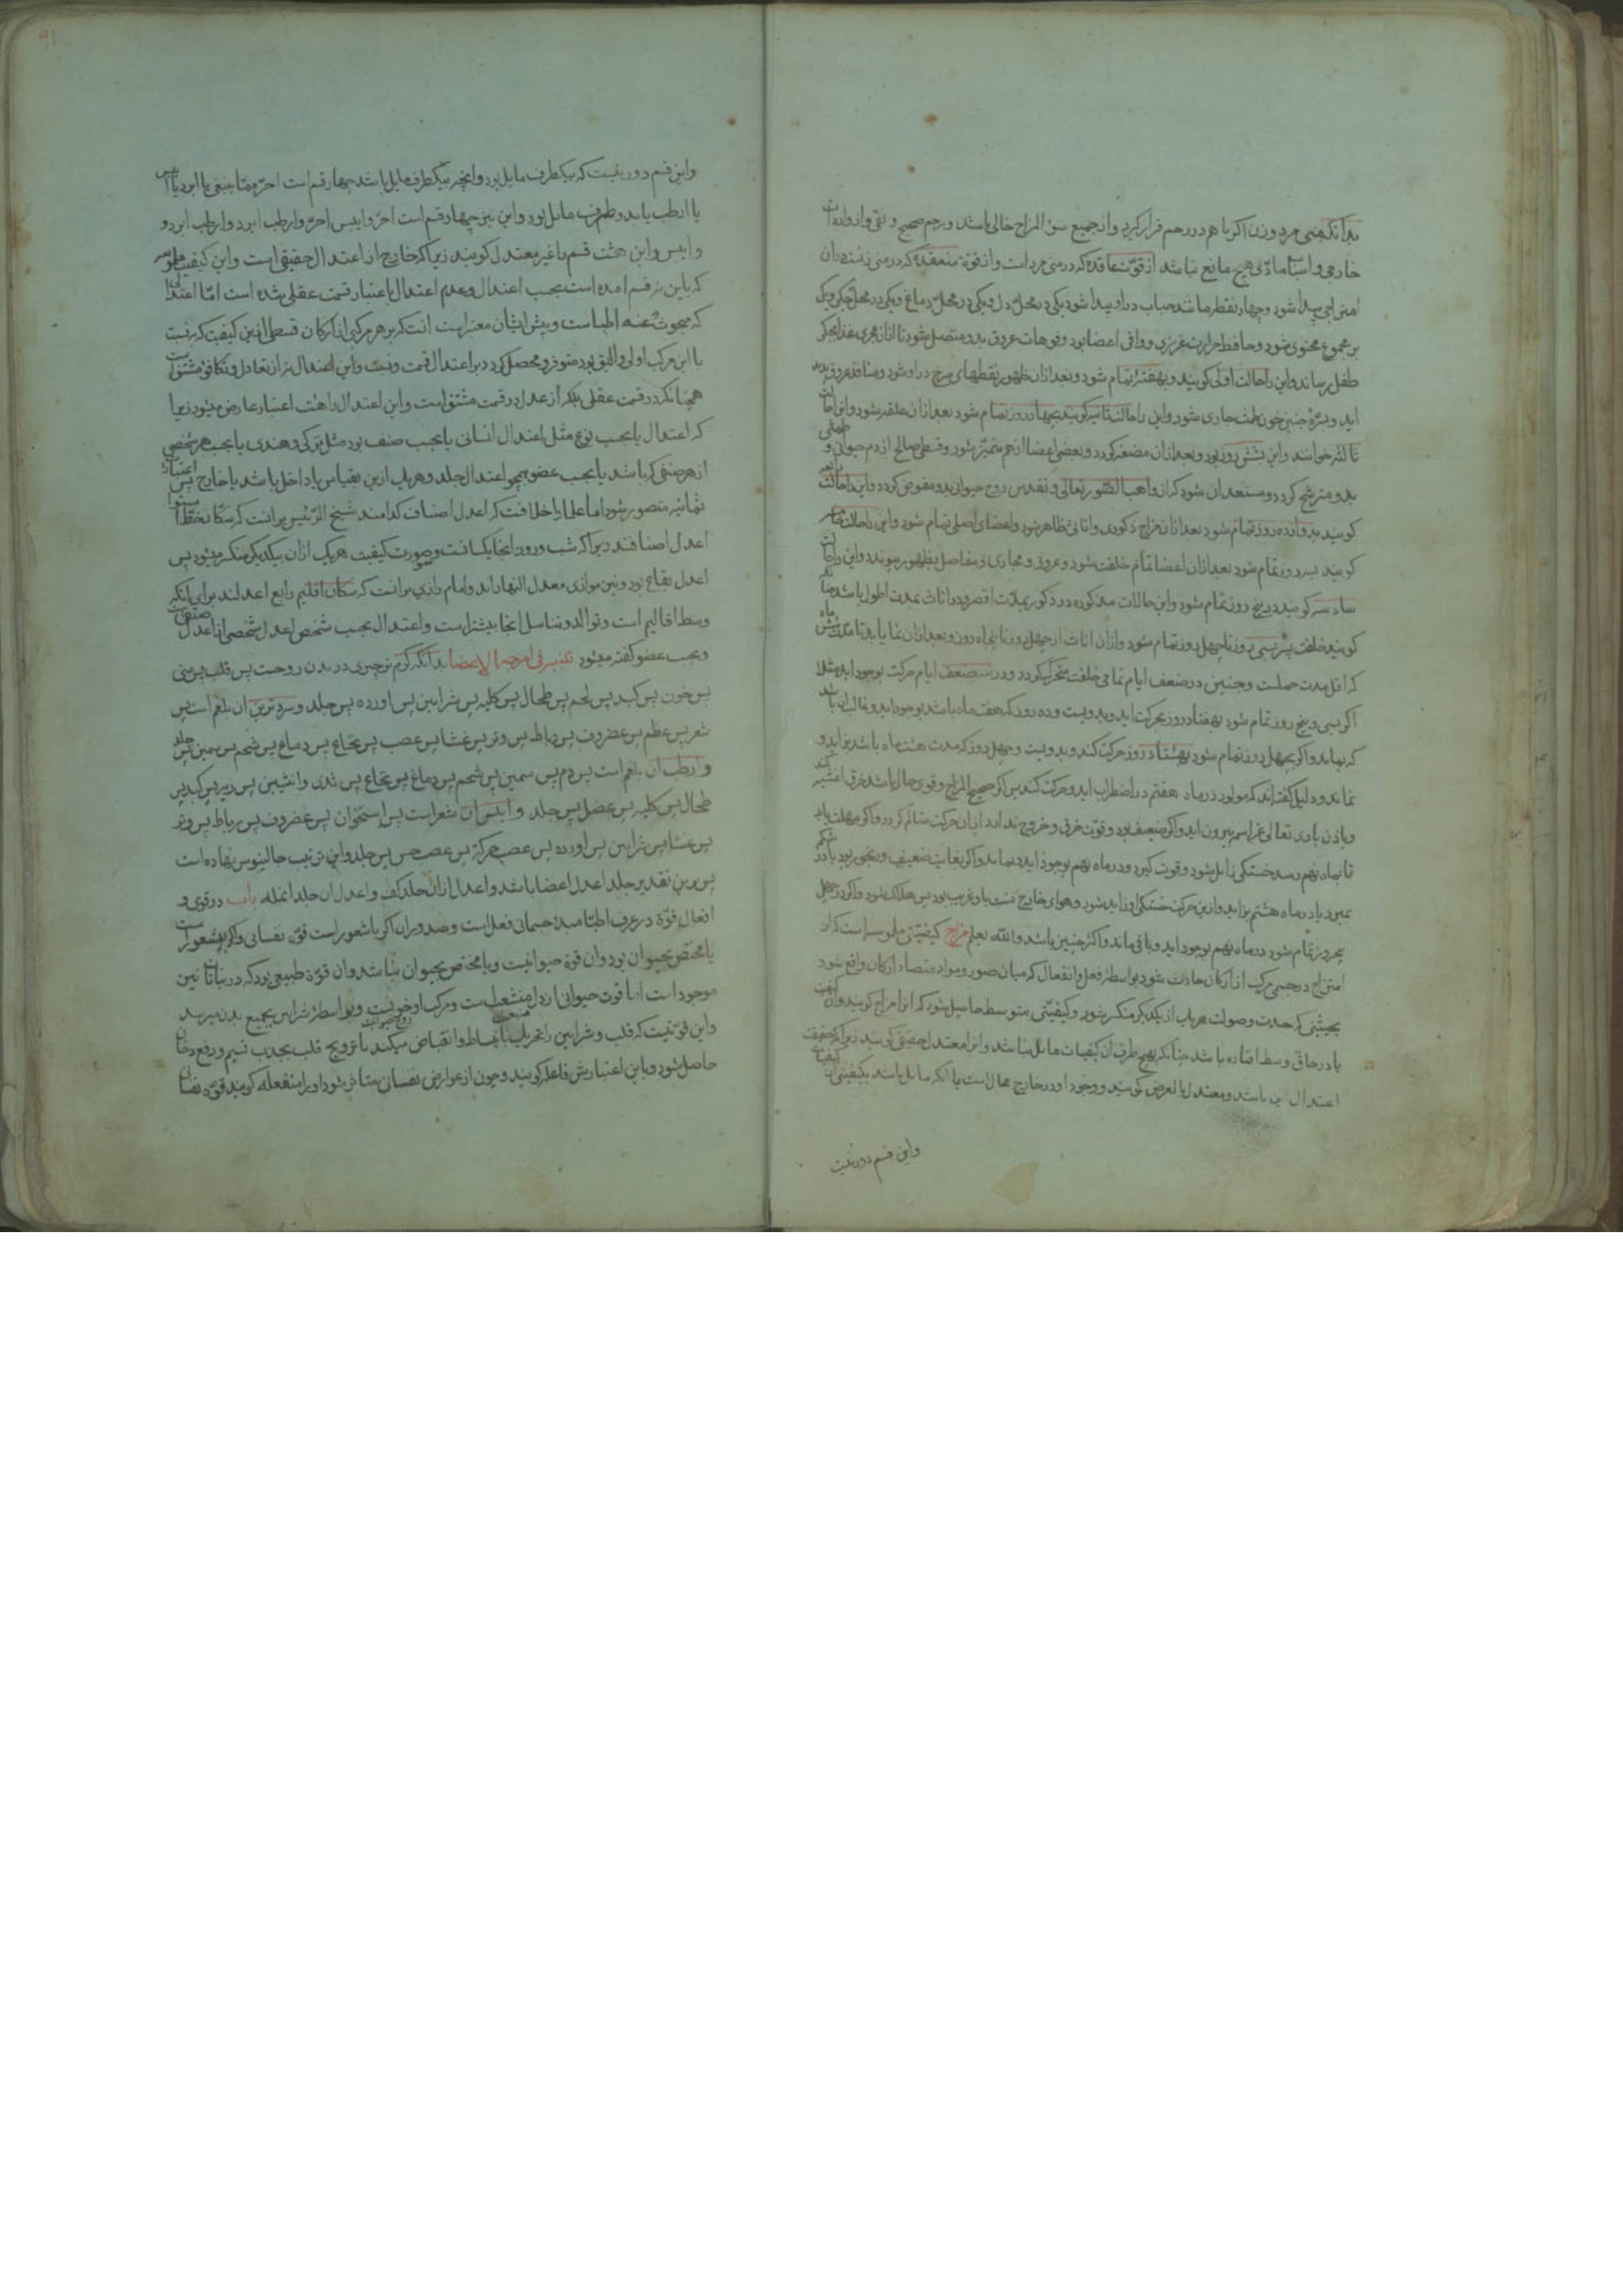 بدانکه منی مرد و زن اکر با هم در رحم قرار کیرد و از جمیع سوء المزاج خالی باشد و رحم صحیح و نقی و از واردات
خارجی و اسباب مادی هیچ مانع نباشد از قوت عاقده که در منی مرد است و از قوة منعقده که در منی زنست دران
امتزاجی پیدا شود و چهار نقطه مانند حباب در او پیدا شود یکی در محل دل و یکی در محل دماغ و یکی در محل جکر و یکی
بر مجموع محتوی شود و حافظ حرارت غریزی و واقی اعضا بود و فوهات عروق بدو متصل شود تا از ان مجری غذا بجکر
طفل رساند و این را حالت اولی کویند و بهفتۀ تمام شود و بعد ازان ظهور نقطهای سرخ در او شود و منافذ عروق پدید
اید و بسرۀ جنین خون طمث جاری شود و این را حالت ثانیه کویند بچهار روز تمام شود بعد ازان علقه شود و این را حالت
ثالثه خوانند و این بشش روز بود و بعد ازان مضغه کردد و بعضی اعضا از هم متمیز شود و قسطی صالح از دم حیوانی و طمثی
بدو مترشح کردد و مستعد ان شود که از واهب الصور تعالی و تقدس روح حیوانی بدو مفوض کردد و اینرا حالت رابعه
کویند بدوازده روز تمام شود بعد ازان مزاج ذکوری و اناثی ظاهر شود و اعضای اصلی تمام شود و این را حالت خامسه
کویند بسه روز تمام شود بعد ازان اعضا تمام خلقت شود و عروق و مجاری و مفاصل بظهور پیوندد و این را حالت
سادسه کویند و بپنج روز تمام شود و این حالات مذکوره در ذکور بمدت اقصر و در اناث بمدت اطول باشد چنانکه
کویند خلقت پسر بسی روز تا چهل روز تمام شود و ازان اناث از چهل روز تا پنجاه روز و بعد ازان نما یابد تا مدت شش ماه
که اقل مدت حملست و جنین در ضعف ایام تمامی خلقت متحرک کردد و در سه ضعف ایام حرکت بوجود اید مثلا
اکر بسی و پنج روز تمام شود بهفتاد روز بحرکت اید و بدویست و ده روز که هفت ماه باشد بوجود اید و غالب ان باشد
که بماند و اکر بچهل روز تمام شود بهشتاد روز حرکت کند و بدویست و چهل روز که مدت هشت ماه باشد بزاید و
نماند و دلیل کفته اند که مولود در ماه هفتم در اضطراب اید و حرکت کند پس اکر صحیح المزاج و قوی حال باشد خرق اغشیه کند
و باذن باری تعالی عز اسمه بیرون اید و اکر ضعیف بود و قوت خرق و خروج ندارد ازان حرکت متالم کردد و اکر مهلت یابد
تا بماه نهم رسد خستکی زایل شود و قوت کیرد و در ماه نهم بوجود اید و بماند و اکر بغایت ضعیف و رنجور بود یا در شکم
بمیرد یا در ماه هشتم بزاید و ازین حرکت خستکی او زاید شود و هوای خارج نسبت باو غریب بود پس هلاک شود و اکر در چهل
پنج روز تمام شود در ماه نهم بوجود اید و باقی ماند و اکثر چنین باشد والله یعلم مزاج کیفیتی ملموسه است که از
امتزاج در جسمی مرکب از ارکان حادث شود بواسطۀ فعل و انفعال که میان صور و مواد متضاد ارکان واقع شود
بحیثتی که حدت و صولت هر یک از یکدیکر منکسر شود و کیفیتی متوسط حاصل شود که انرا مزاج کویند وان کیفیت
یا در حاق وسط افتاده باشد چنانکه بهیچ طرف ان کیفیات مایل نباشد و انرا معتدل حقیقی کویند زیرا که حقیقت
اعتدال این باشد و معتدل بالعرض کویند و وجود او در خارج محال است یا انکه مایل باشد بکیفیتی از کیفیات
واین قسم دور نیست
واین قسم دور نیست که بیکطرف مایل بود وانچه بیکطرف مایل باشد چهار قسم است احر مما ینبغی یا ابرد یا ایبس
یا ارطب یا بدو طرف مایل بود واین نیز چهار قسم است احر و ایبس احر وارطب ابرد وارطب ابرد و
و ایبس واین هشت قسم را غیر معتدل کویند زیرا که خارج از اعتدال حقیقی است واین کیفیت ملموسه
که باین نه قسم امده است بحسب اعتدال وعدم اعتدال باعتبار قسمت عقلی شده است امّا اعتدالی
که مبحوث عنه اطباست و پیش ایشان معتبر است انست که بر هر مرکبی از ارکان قسطی ازین کیفیت که نسبت
با این مرکب اولی والیق بود متوفر و محصل کردد براعتدال قسمت و نسبت واین اعتدال نه از تعادل و تکافؤ مشتق است
همچنانکه در قسمت عقلی بلکه از عدل در قسمت مشتق است واین اعتدال را هشت اعتبار عارض میشود زیرا
که اعتدال یا بحسب نوع مثل اعتدال انسانی یا بحسب صنف بود مثل ترکی و هندی یا بحسب هر شخصی
از هر صنفی که باشد یا بحسب عضو همچو اعتدال جلد و هر یک ازین بقیاس یا داخل باشد یا خارج پس اعتبارات
ثمانیه متصور شود اما علما را خلافست که اعدل اصناف کدامند شیخ الرئیس برانست که سکان خط استوا
اعدل اصنافند زیرا که شب و روز انجا یکسانست و صورت کیفیت هر یک ازان بیکدیکر منکسر میشود پس
اعدل بقاع بود و بین موازی معدل النهار اند وامام رازی برانست که سکان اقلیم رابع اعدلند برای انکه
وسط اقالیم است و توالد و تناسل انجا بیشتر است واعتدال بحسب شخص اعدل شخصی از اعدل صنفی است
وبحسب عضو کفته میشود تنبیه فی امزجة الاعضا بدانکه کرم ترین چیزی در بدن روحست پس قلب پس منی
پس خون پس کبد پس لحم پس طحال پس کلیه پس شرایین پس اورده پس جلد و سرد ترین ان بلغم است پس
شعر پس عظم پس غضروف پس رباط پس وتر پس غشا پس عصب پس نخاع پس دماغ پس شحم پس سمین پس جلد
و ارطب ان بلغم است پس دم پس سمین پس شحم پس دماغ پس نخاع پس ثدی وانثیین پس ریه پس کبد پس
طحال پس کلیه پس عضل پس جلد و ایبس ان شعر است پس استخوان پس غضروف پس رباط پس وتر
پس غشا پس شرایین پس اورده پس عصب حرکة پس عصب حس پس جلد واین ترتیب جالینوس نهاده است
پس برین تقدیر جلد اعدل اعضا باشد واعدل ازان جلد کف واعدل ان جلد انمله باب در قوی و
افعال قوّة در عرف اطبّا مبدء جسمانی فعل است و صدور ان اکر با شعور است قوّه نفسانی واکر بیشعور است
یا مختص بحیوان بود وان قوة حیوانیست و یا مختص بحیوان نباشد وان قوّة طبیعی بود که در نباتات نیز
موجود است اما قوت حیوانی از دل منشعب است ومرکب او خونیست و بواسطۀ شرایین بجمیع بدن میرسد
واین قوّتیست که قلب و شرایین را تحریک بانبساط وانقباض میکند تا ترویح قلب بجذب نسیم و رفع دخان
حاصل شود وباین اعتبارش فاعله کویند وچون از عوارض نفسانی متاثر شود او را منفعله کویند قوّه نفسانی